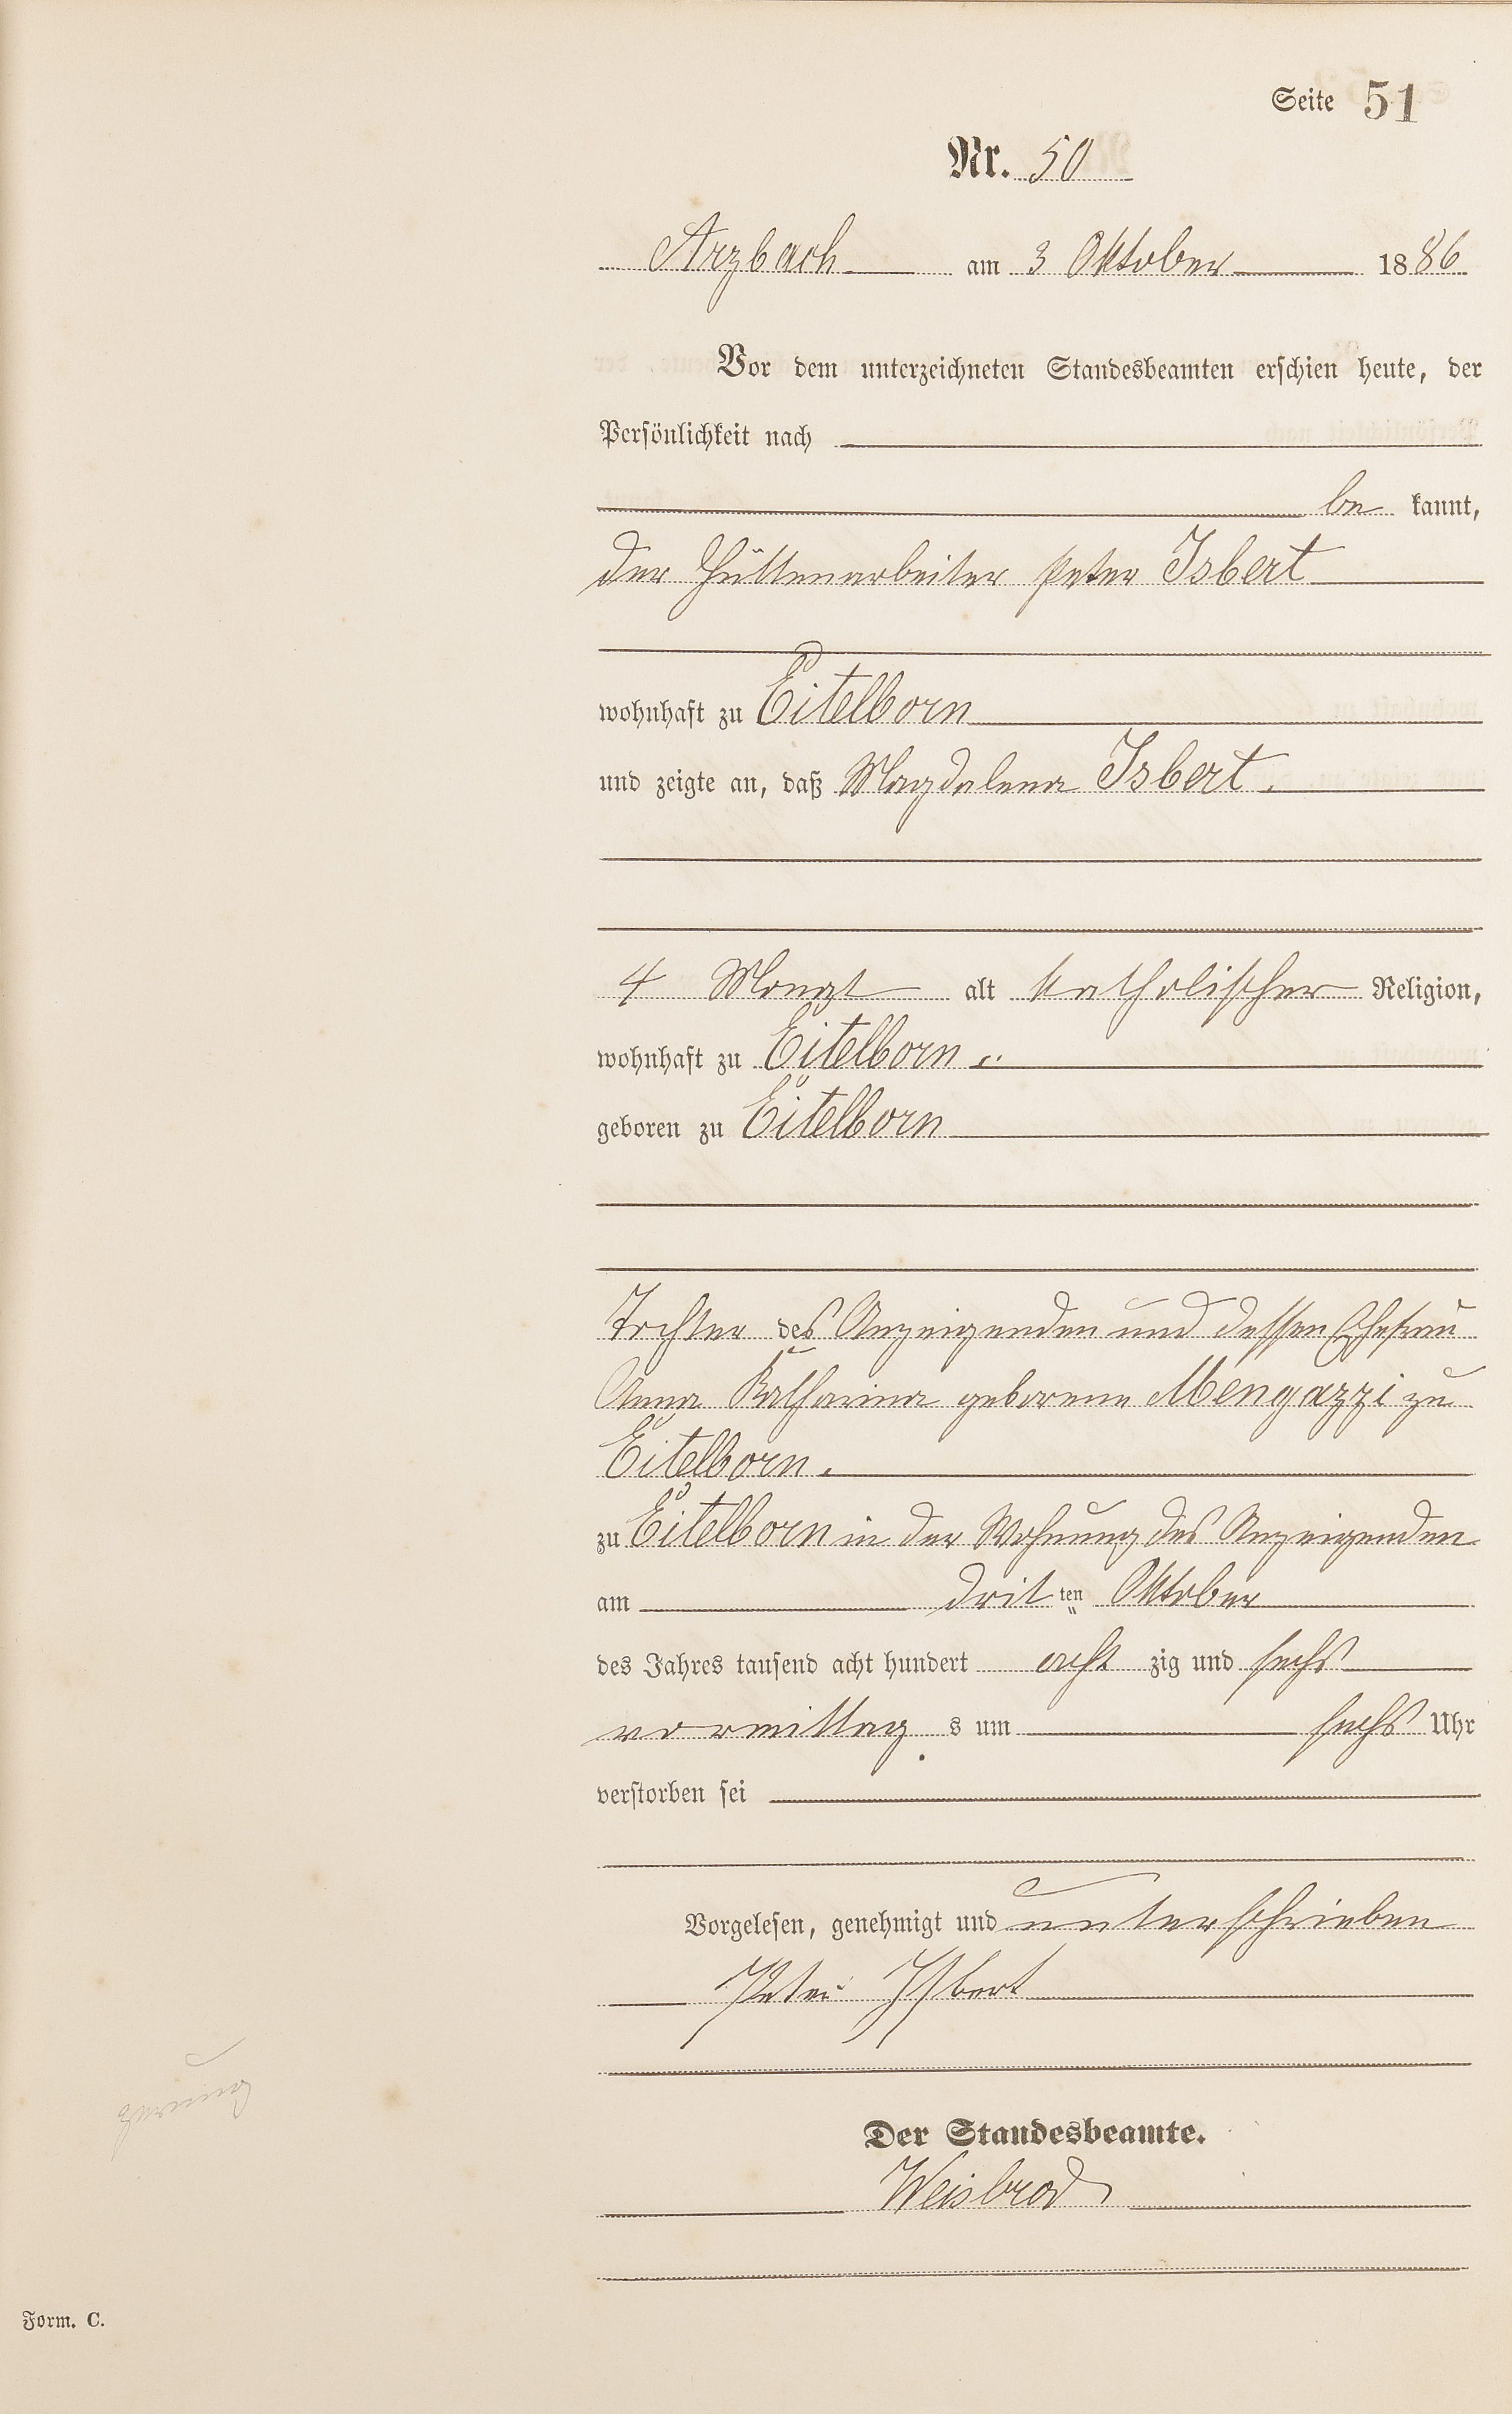 Seite 51
Nr. 50
Arzbach am 3 Oktober 1886
Vor dem unterzeichneten Standesbeamten erschien heute, der
Persönlichkeit nach
be kannt,
der Hüttenarbeiter Peter Isbert
wohnhaft zu Eitelborn
und zeigte an, daß Magdalena Isbert.
4 Monat alt katholischer Religion,
wohnhaft zu Eitelborn
geboren zu Eitelborn
Tochter des Anzeigenden und dessen Ehefrau
Anna Katharina geborene Mengazzi zu
Eitelborn.
zu Eitelborn in der Wohnung des Anzeigenden
am dritten Oktober
des Jahres tausend acht hundert acht zig und sechs
vormittag s um sechs Uhr
verstorben sei
Vorgelesen, genehmigt und unterschrieben
Peter Isbert
Der Standesbeamte.
Weisbrod
Form. C.